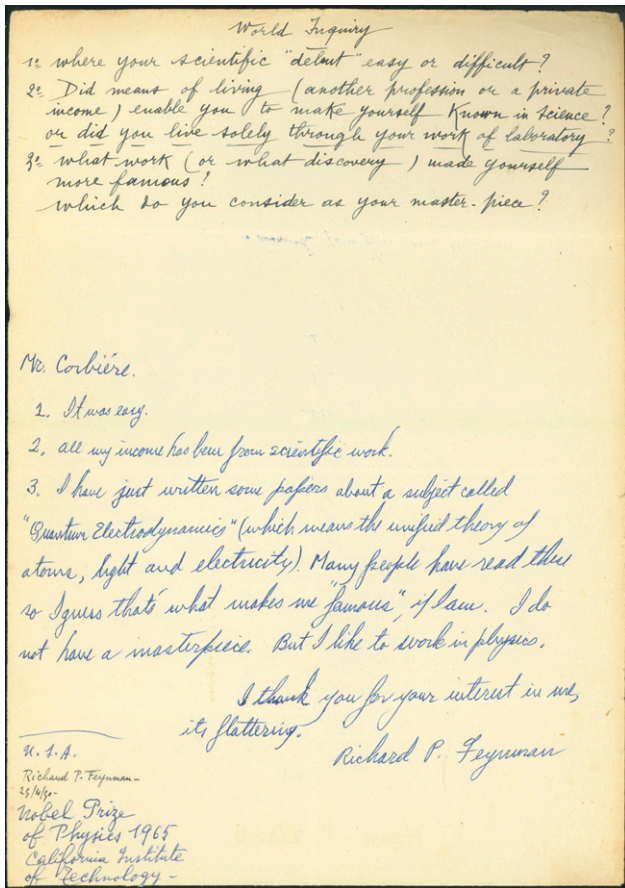 World Inquiry
1º where your scientific "debut" easy or difficult?
2º Did means of living (another profession or a private
income) enable you to make yourself Known in Science?
or did you live solely through your work of laboratory?
3º what work (or what discovery) made yourself
more famous?
which do you consider as your master-piece?
Mr. Corbiére.
1. It was easy.
2. all my income has been from scientific work.
3. I have just written some papers about a subject called
"Quantum Electrodynamics" (which means the unified theory of
atoms, light and electricity). Many people have read these
so I guess that's what makes me "famous", if I am. I do
not have a masterpiece. But I like to work in physics.
I thank you for your interest in me,
its flattering.
Richard P. Feynman
U.S.A.
Richard P. Feynman-
Nobel Prize
of Physics 1965
California Institute
of Technology-